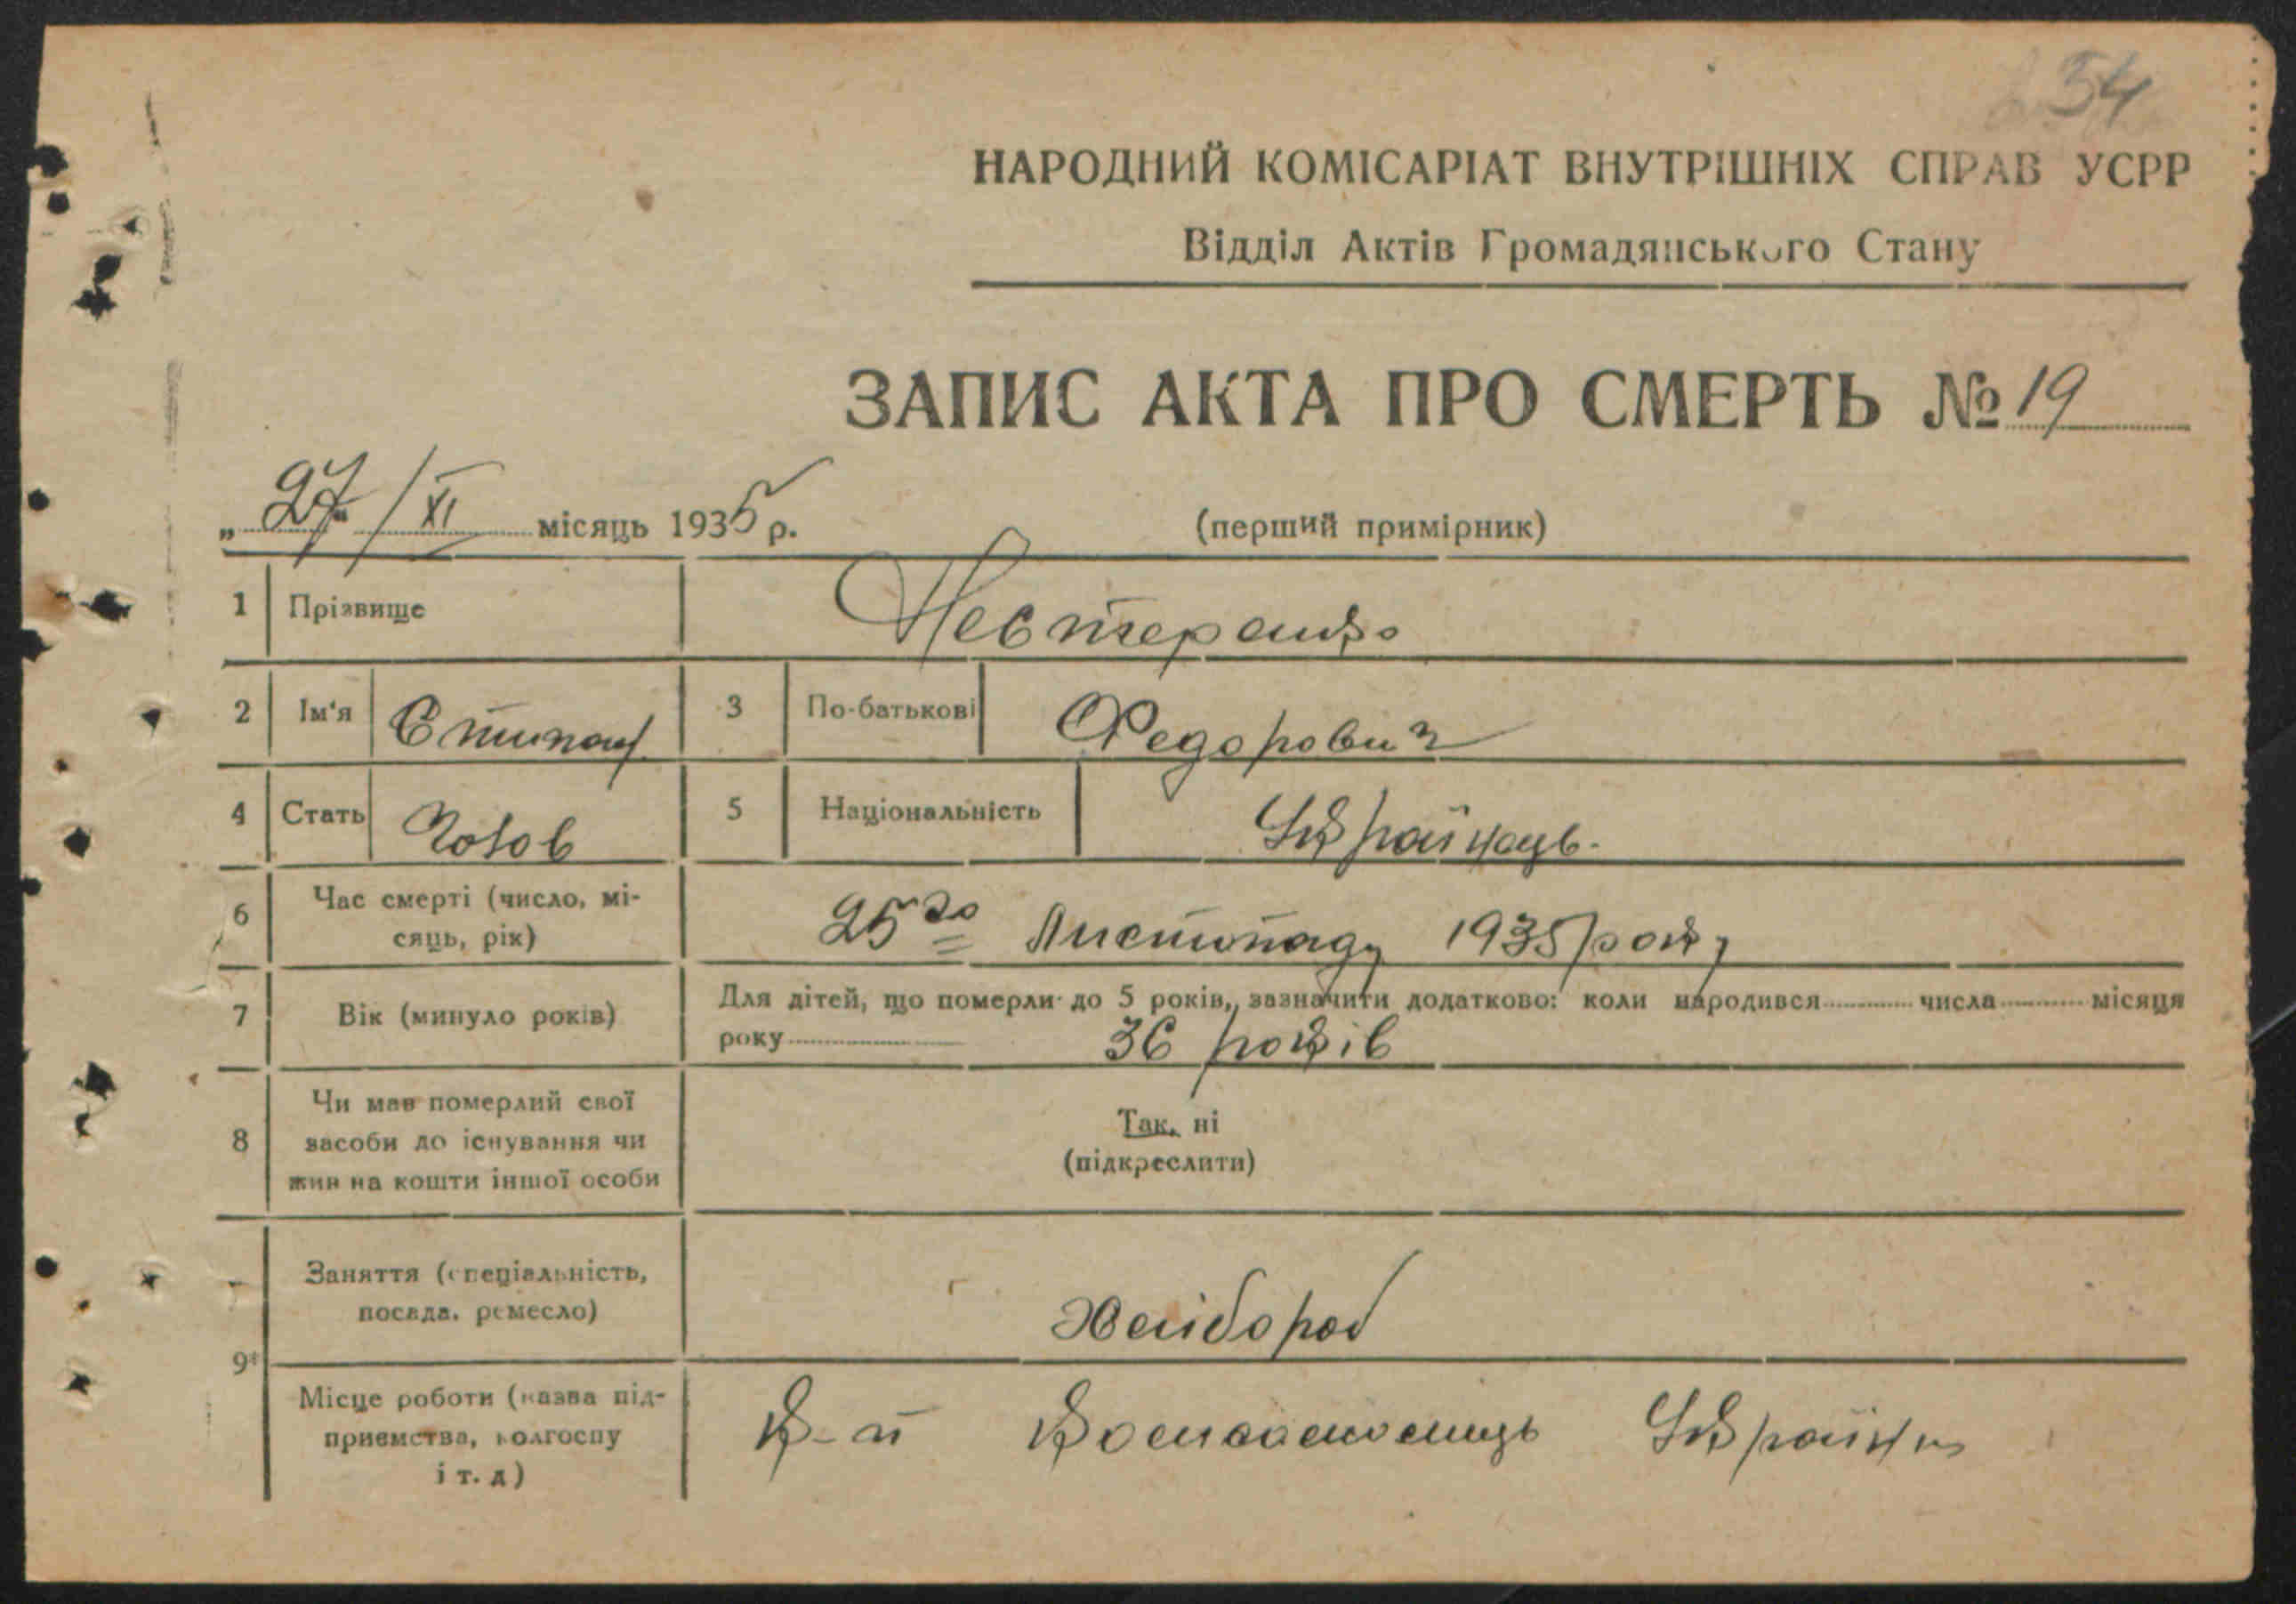 54
НАРОДНИЙ КОМІСАРІАТ ВНУТРІШНІХ СПРАВ УСРР
Відділ Актів Громадянського Стану
ЗАПИС АКТА ПРО СМЕРТЬ № 19
„27“/XI місяць 1935 р.
(перший примірник)
1 Прізвище Нестеранко
2 Ім'я Стипан 3 По-батькові Федорович
4 Стать Чолов 5 Національність Українець.
6 Час смерті (число, мі-
сяць, рік) 25го Листопаду 1935 року
7 Вік (минуло років) Для дітей, що померли до 5 років, зазначити додатково: коли народився числа місяця
року 36 років
8 Чи мав померлий свої
засоби до існування чи
жив на кошти іншої особи
Так, ні
(підкреслити)
9 Заняття (спеціальність,
посада, ремесло) Хлібороб
Місце роботи (назва під-
приємства, колгоспу
і т. д) К-п Комсомолець України